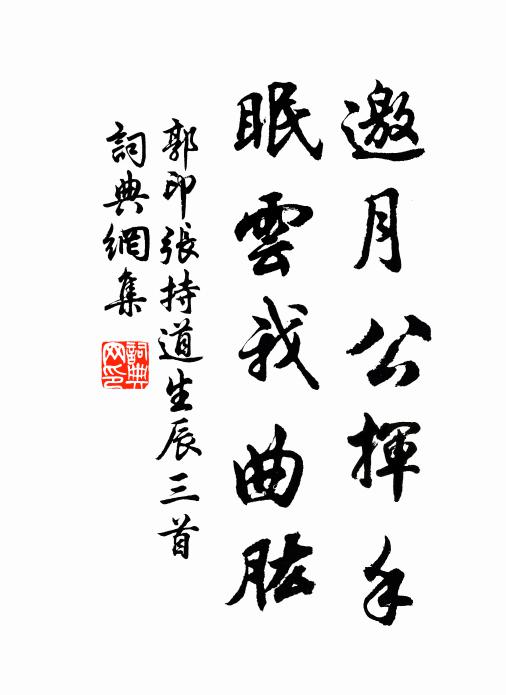 邀月公揮手
眠雲我曲肱
郭印張持道生辰三首
詞典網集
詞典網印